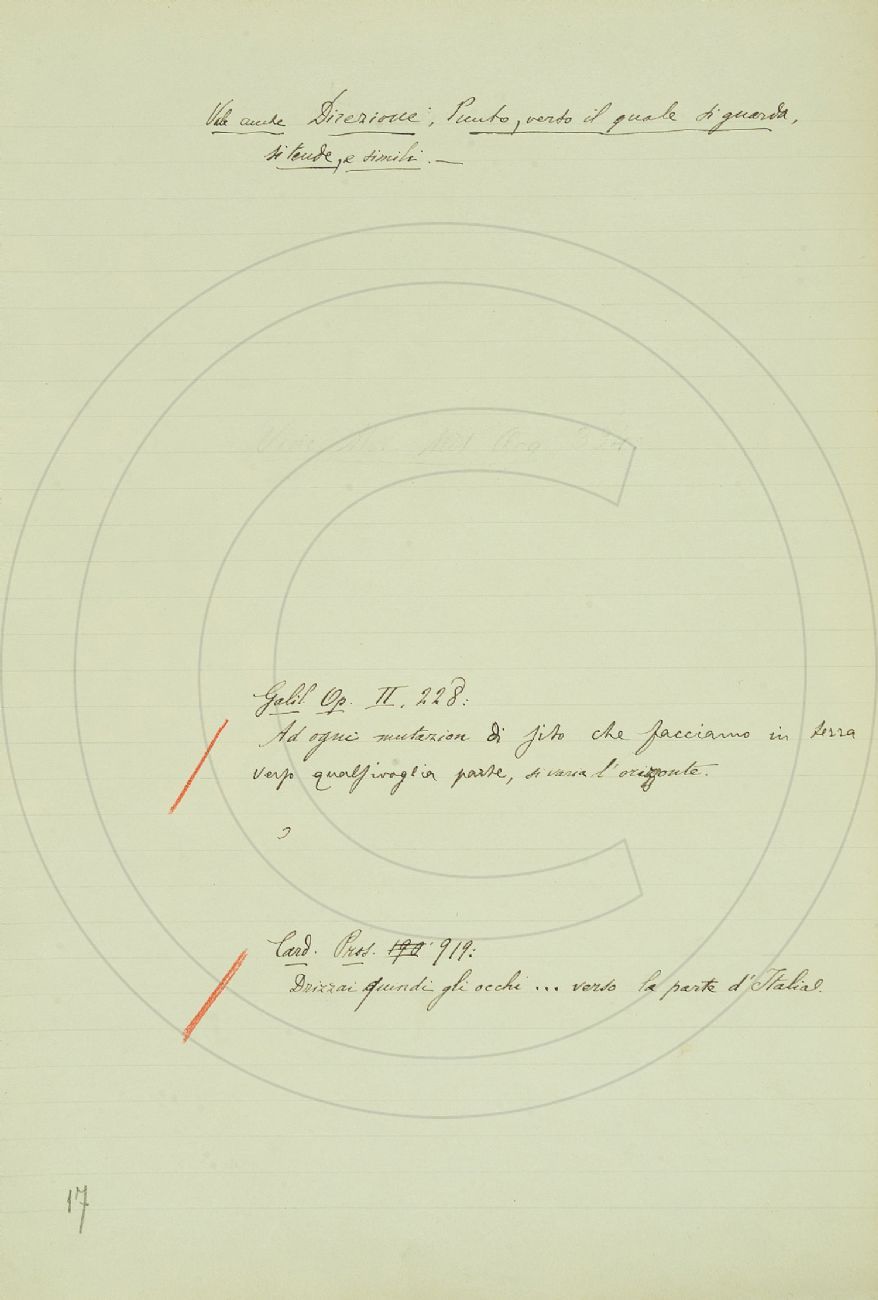 Vale anche Direzione, Punto, verso il quale si guarda,
si tende, e simili. —
Galil. Op. II. 228:
Ad ogni mutazion di sito che facciamo in terra
verso qualsivoglia parte, si varia l'orizzonte.
Card. Pros. 190 919:
Drizzai quindi gli occhi ... verso la parte d'Italia.
17